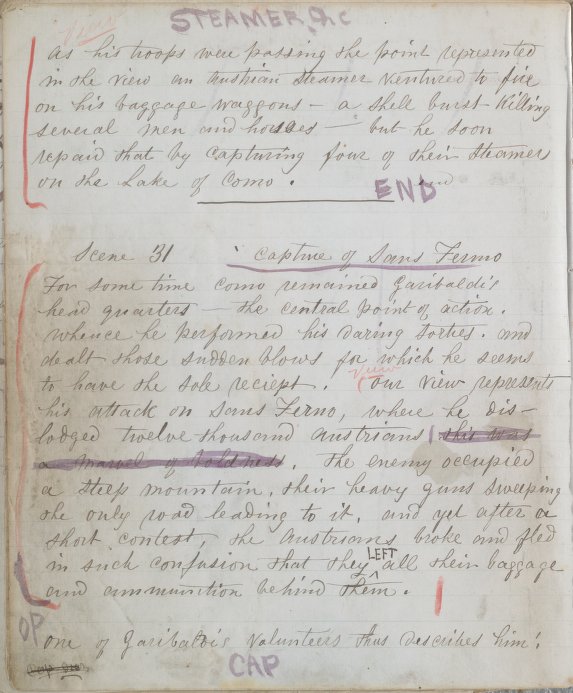 STEAMER, &c
View
As his troops were passing the point represented
in the view an Austrian Steamer ventured to fire
on his baggage waggons – a shell burst killing
several men and horses – but he soon
repaid that by capturing four of their Steamers
on the Lake of Como.
END
Scene 31 Capture of Sans Fermo
For some time Como remained Garibaldi's
head quarters – the central point of action.
whence he performed his daring sorties. and
dealt those sudden blows for which he seems
to have the sole reciept. View our view represents
his attack on Sans Ferno, where he dis-
lodged twelve thousand Austrians this was
a marvel of boldness. The enemy occupied
a steep mountain, their heavy guns sweeping
the only road leading to it, and yet after a
short contest, the Austrians broke and fled
in such confusion that they LEFT all their baggage
and ammunition behind them.
OP
one of Garibaldi's Volunteers thus describes him:
CAP